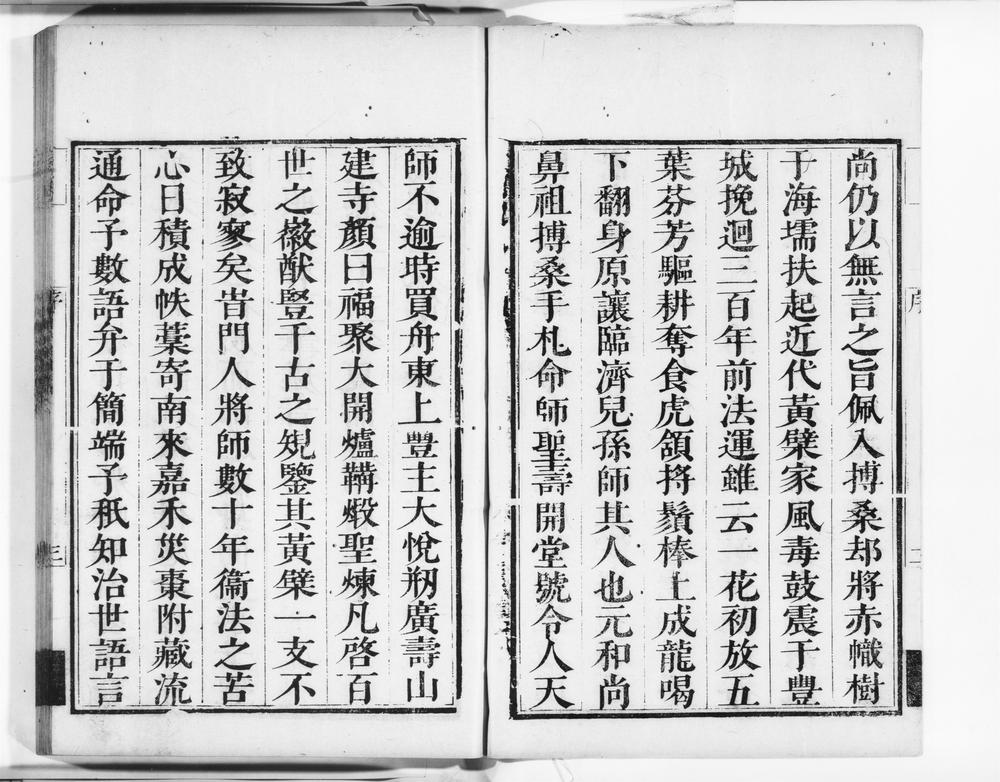 尚仍以無言之旨佩入搏桑却將赤幟樹
于海壖扶起近代黃檗家風毒鼓震于豐
城挽迴三百年前法運雖云一花初放五
葉芬芳驅耕奪食虎頷捋鬚棒上成龍喝
下翻身原讓臨濟兒孫師其人也元和尚
鼻祖搏桑手札命師聖壽開堂號令人天
師不逾時買舟東上豐主大悅剏廣壽山
建寺顏曰福聚大開爐鞴煅聖煉凡啓百
世之徽猷豎千古之䂓鑒其黃檗一支不
致寂寥矣旹門人將師數十年衞法之苦
心日積成帙藁寄南來嘉禾災棗附藏流
通命予數語弁于簡端予秖知治世語言
序 二
序 三